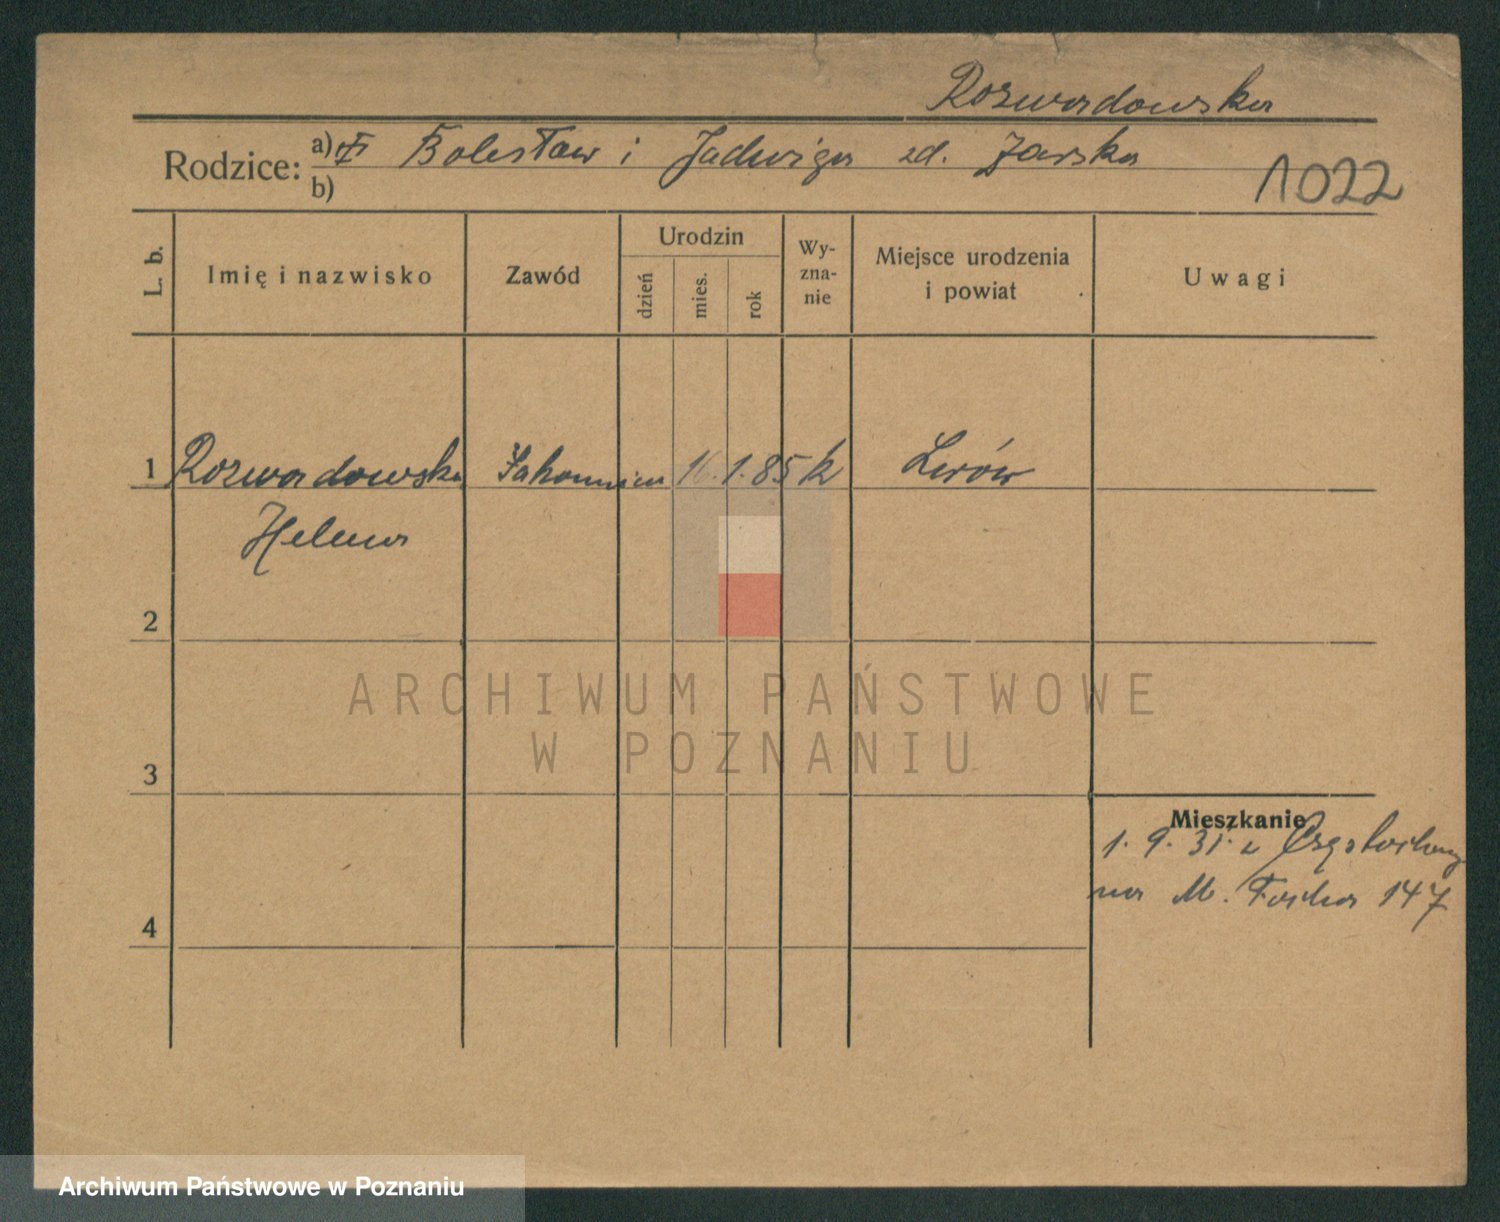 Rozwadowska
Rodzice: a) Bolesław i Jadwiga zd. Żarska
b)
1022
L. b.
Imię i nazwisko
Zawód
Urodzin
dzień
mies.
rok
Wy-
zna-
nie
Miejsce urodzenia
i powiat
Uwagi
1 Rozwadowska Zakonnica 16. 1. 85 k Lwów
Helena
2
3
4
Mieszkanie
1. 9. 31. z Częstochowy
na M. Focha 147
ARCHIWUM PAŃSTWOWE
W POZNANIU
Archiwum Państwowe w Poznaniu